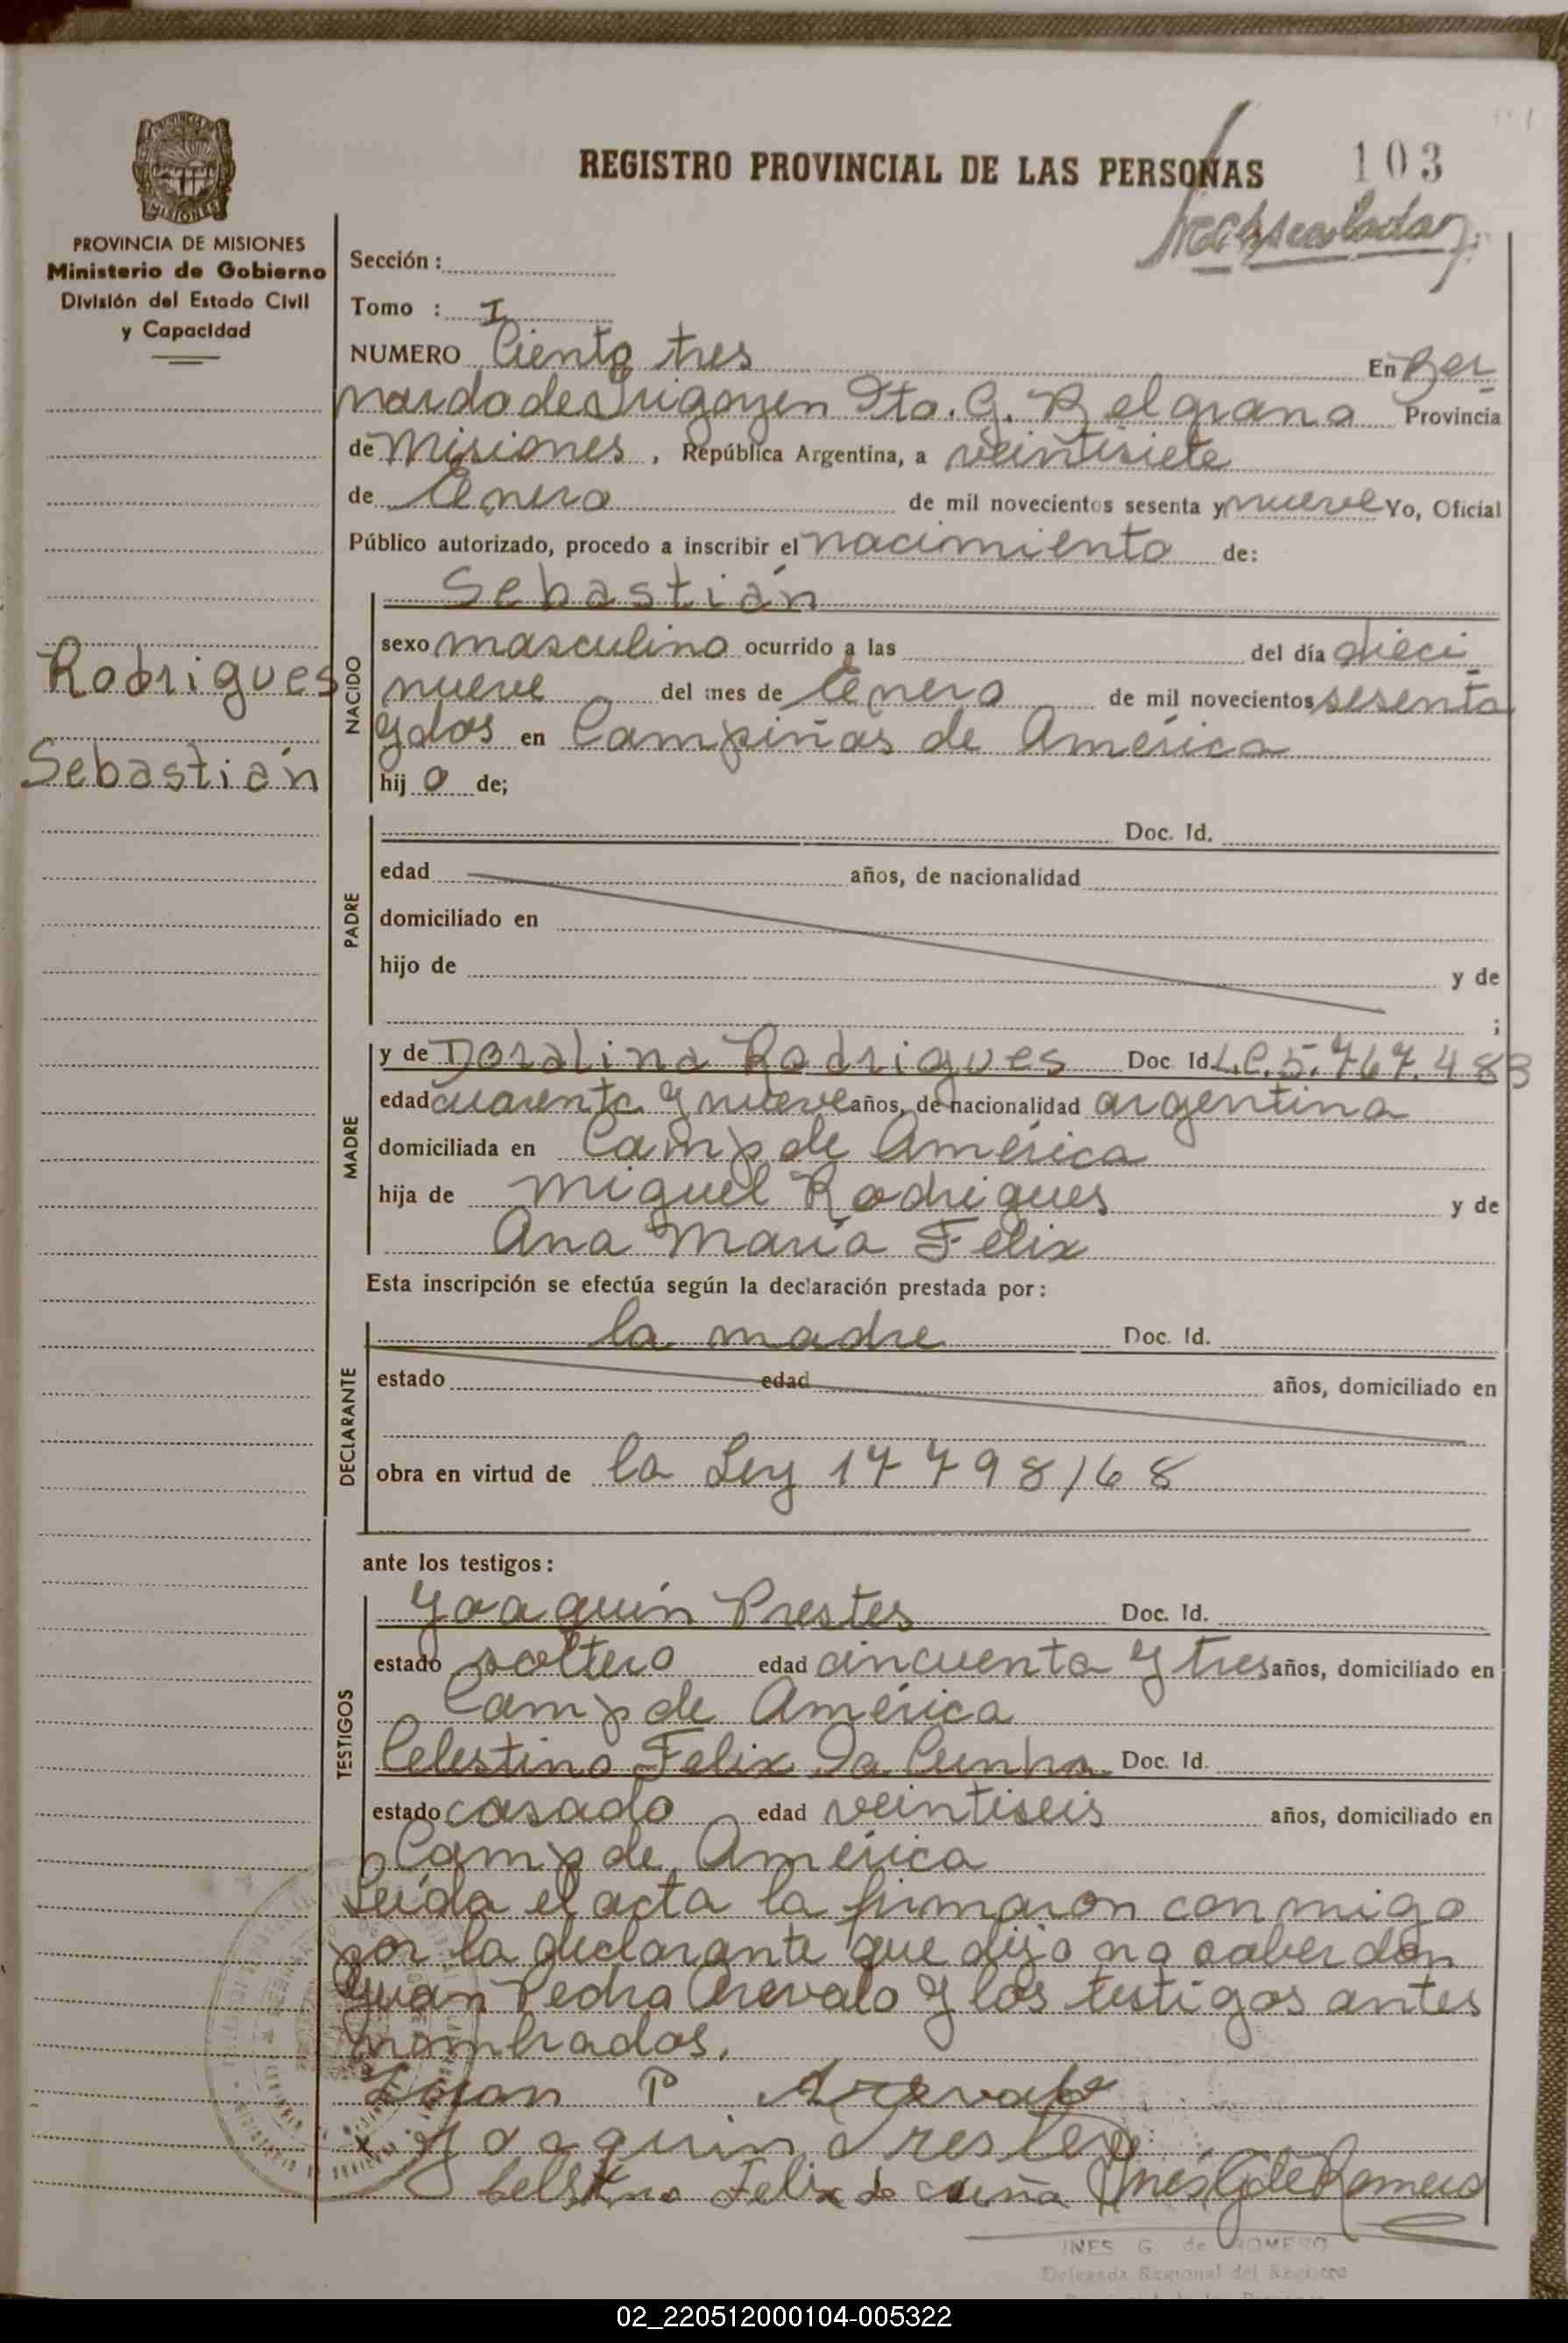 REGISTRO PROVINCIAL DE LAS PERSONAS 103
PROVINCIA DE MISIONES
Ministerio de Gobierno
División del Estado Civil
y Capacidad
Sección :
Tomo : I
NUMERO Ciento tres En Ber
nardo de Irigoyen Dto. G. Belgrano Provincia
de Misiones, República Argentina, a veintisiete
de Enero de mil novecientos sesenta y nueve Yo, Oficial
Público autorizado, procedo a inscribir el nacimiento de:
Rodrigues
Sebastián
NACIDO
Sebastián
sexo masculino ocurrido a las del día dieci
nueve del mes de Enero de mil novecientos sesenta
y dos en Campiñas de América
hijo de;
PADRE
Doc. Id.
edad años, de nacionalidad
domiciliado en
hijo de y de
;
MADRE
y de Doralina Rodrigues Doc Id L.C. 5.767.483
edad cuarenta y nueve años, de nacionalidad argentina
domiciliada en Camp de América
hija de Miguel Rodrigues y de
Ana María Felix
Esta inscripción se efectúa según la declaración prestada por:
DECLARANTE
la madre Doc. Id.
estado edad años, domiciliado en
obra en virtud de la Ley 17798/68
ante los testigos:
TESTIGOS
Joaquín Prestes Doc. Id.
estado soltero edad cincuenta y tres años, domiciliado en
Camp de América
Celestino Felix Da Cunha Doc. Id.
estado casado edad veintiseis años, domiciliado en
Camp de América
Leída el acta la firmaron conmigo
por la declarante que dijo no saber don
Juan Pedro Arevalo y los testigos antes
nombrados.
Juan P Arevalo
Joaquin Prestes
Felix da cuña Inés G de Romero
INES G. de ROMERO
Delegada Regional del Registro
02_220512000104-005322